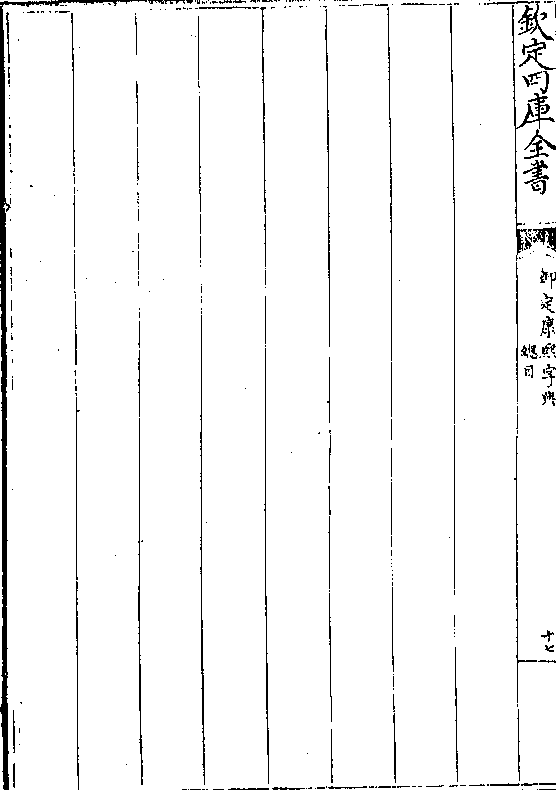 欽定四庫全書
御定康熙字典
總目
十七